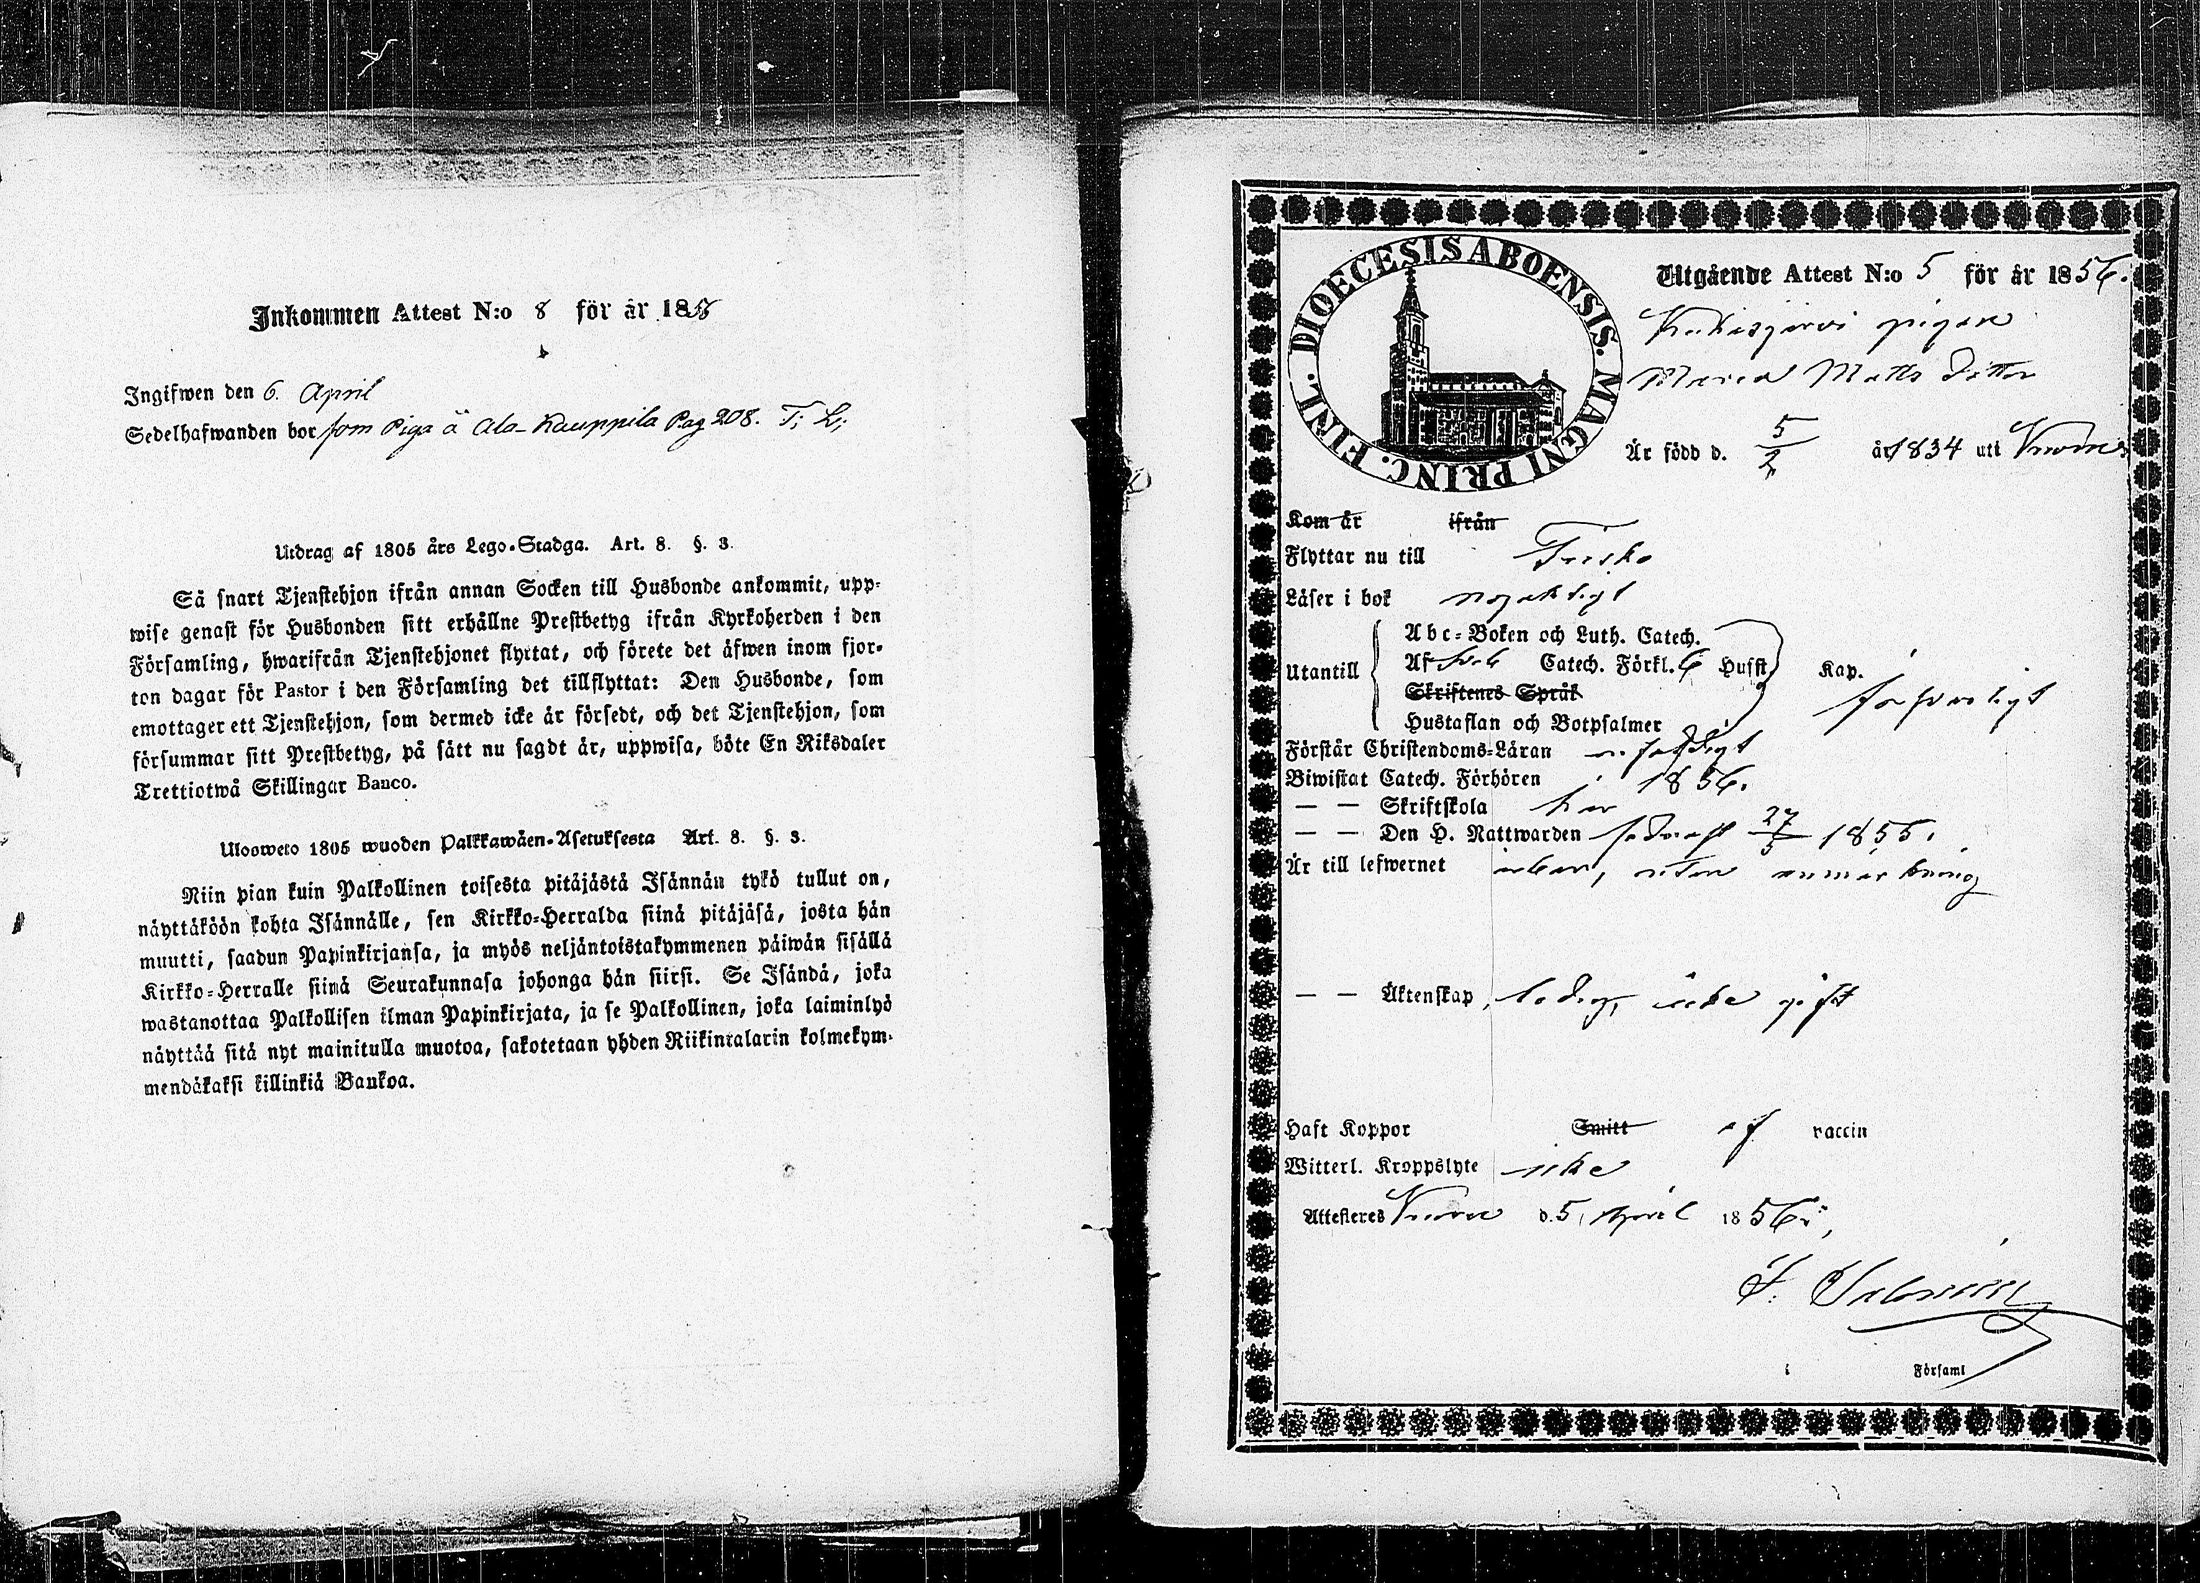 Inkommen Attest N:o 8 för år 1856
Ingifwen den 6. April
Sedelhafwanden bor som Piga å Ala-Kauppila Pag 208. T; L;
Utdrag af 1805 års Lego-Stadga. Art. 8. §. 3.
Så snart Tjenstehjon ifrån annan Socken till Husbonde ankommit, upp-
wise genast för Husbonden sitt erhållne Prestbetyg ifrån Kyrkoherden i den
Församling, hwarifrån Tjenstehjonet flyttat, och förete det äfwen inom fjor-
ton dagar för Pastor i den Församling det tillflyttat: Den Husbonde, som
emottager ett Tjenstehjon, som dermed icke är försedt, och det Tjenstehjon, som
försummar sitt Prestbetyg, på sätt nu sagdt är, uppwisa, böte En Riksdaler
Trettiotwå Skillingar Banco.
Ulosweto 1805 wuoden Palkkawäen-Asetuksesta Art. 8. §. 3.
Niin pian kuin Palkollinen toisesta pitäjästä Isännän tykö tullut on,
näyttäköön kohta Isännälle, sen Kirkko-Herralda siinä pitäjäsä, josta hän
muutti, saadun Papinkirjansa, ja myös neljäntoistakymmenen päiwän sisällä
Kirkko-Herralle siinä Seurakunnasa johonga hän siirsi. Se Isändä, joka
wastanottaa Palkollisen ilman Papinkirjata, ja se Palkollinen, joka laiminlyö
näyttää sitä nyt mainitulla muotoa, sakotetaan yhden Riikintalarin kolmekym-
mendäkaksi killinkiä Bankoa.
DIOECESIS ABOENSIS. MAGNI PRINC. FINL.
Utgående Attest N:o 5 för år 1856.
pigan
Maria Matts Dotter
Är född d. 5/2 år 1834 uti
Kom år ifrån
Flyttar nu till
Läser i bok nöjaktigt
Abc-Boken och Luth. Catech.
Utantill Af Sveb Catech. Förkl. 6 Hufst Kap.
försvarligt
Skriftenes Språk
Hustaflan och Botpsalmer
Förstår Christendoms-Läran
Biwistat Catech. Förhören 1856.
— — Skriftskola har
— — Den H. Nattwarden sednast 27/5 1855.
Är till lefwernet ärbar, utan anmärkning
— — Äktenskap, ledig, icke gift
Haft Koppor Smitt af vaccin
Witterl. Kroppslyte icke
Attesteras d. 5 April 1856
i Församl